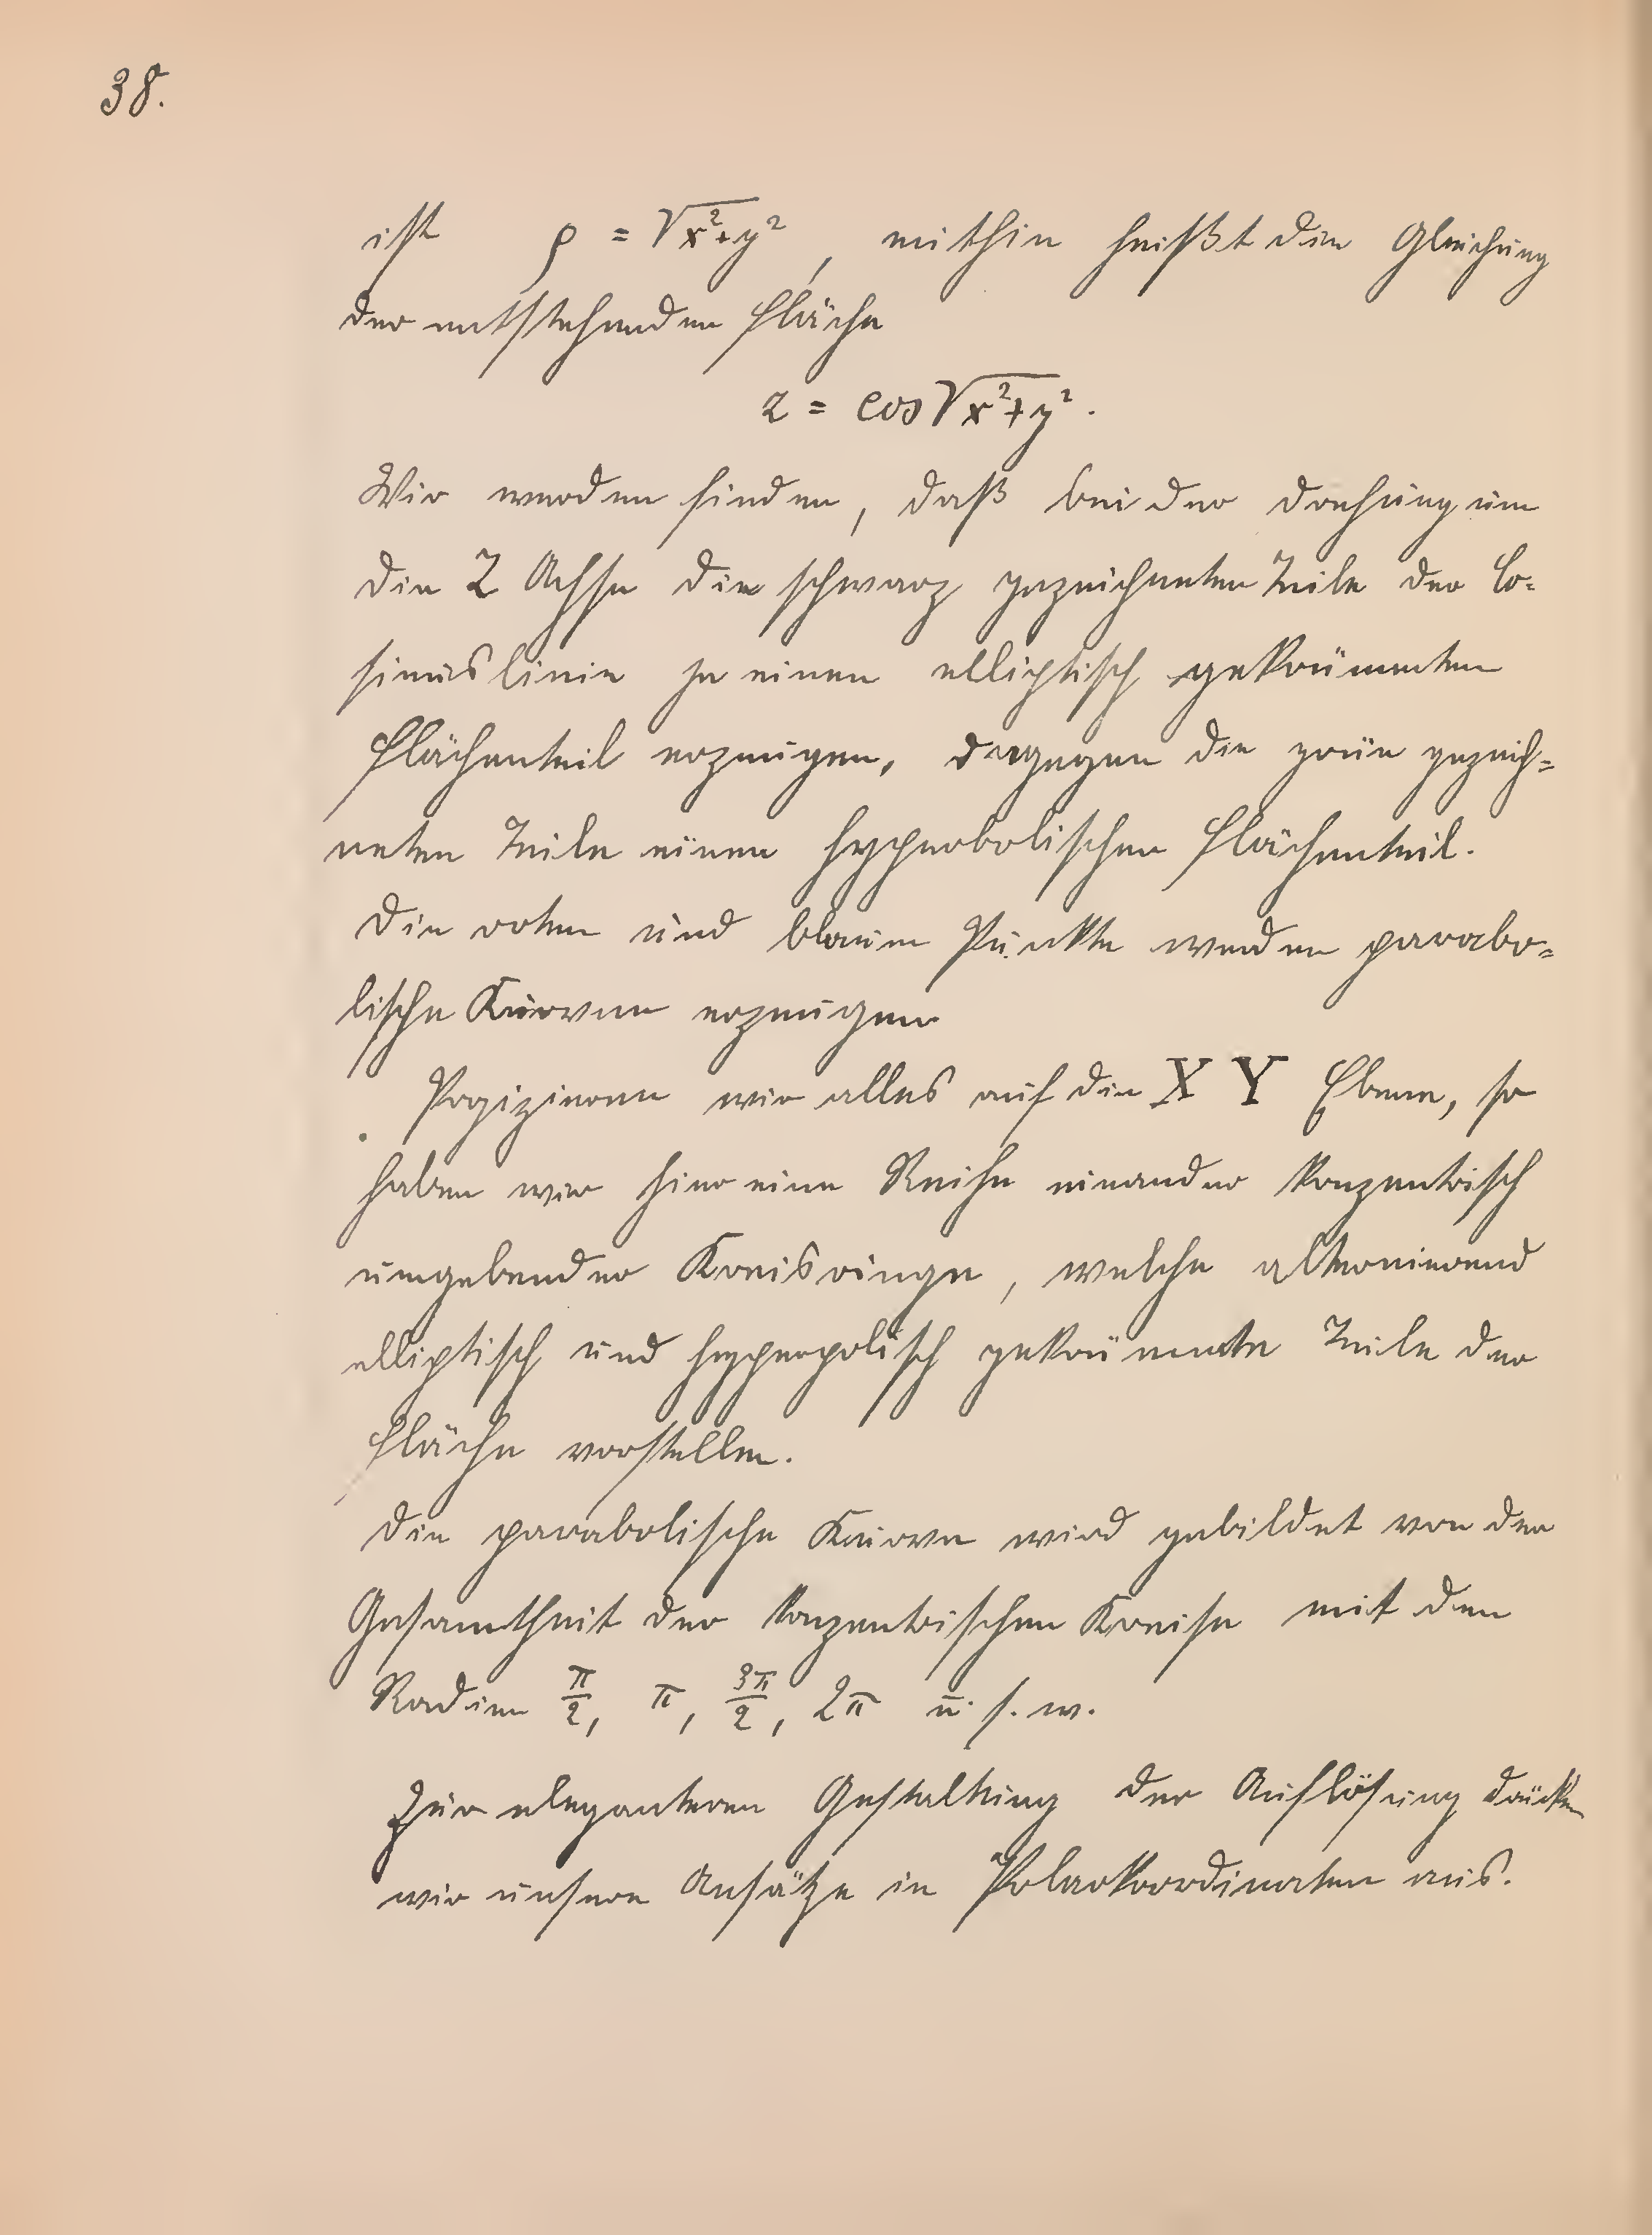 38.
ist ρ = √x²+y², mithin heißt die Gleichung
der entstehenden Fläche
z = cos √x²+y².
Wir werden finden, daß bei der Drehung um
die Z Achse die schwarz gezeichneten Teile der Co-
sinuslinie je einen elliptisch gekrümmten
Flächenteil erzeugen, dagegen die grün gezeich-
neten Teile einen hyperbolischen Flächenteil.
Die roten und blauen Punkte werden parabo-
lische Kurven erzeugen
Projizieren wir alles auf die X Y Ebene, so
haben wir hier eine Reihe einander konzentrisch
umgebender Kreisringe, welche alternierend
elliptisch und hyperpolisch gekrümmte Teile der
Fläche vorstellen.
Die parabolische Kurve wird gebildet von der
Gesamtheit der konzentrischen Kreise mit den
Radien π/2, π, 3π/2, 2π u. s. w.
Zur eleganteren Gestaltung der Auflösung drücken
wir unsere Ansätze in Polarkoordinaten aus.